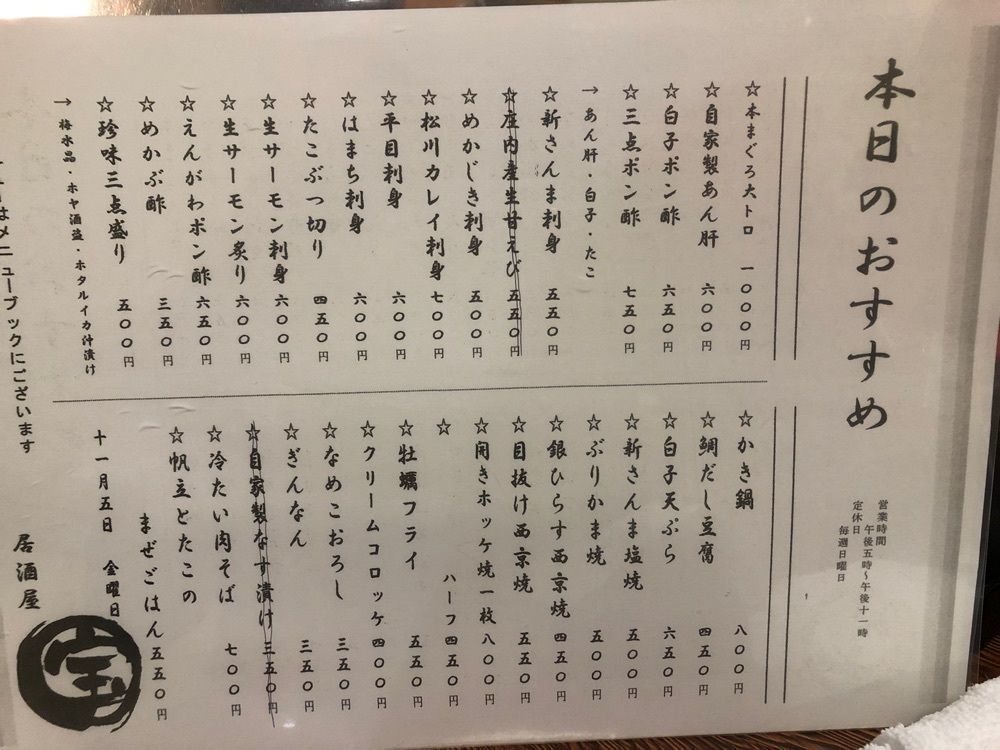 本日のおすすめ
営業時間
午後五時〜午後十一時
定休日
毎週日曜日
☆本まぐろ大トロ 一〇〇〇円
☆自家製あん肝 六〇〇円
☆白子ポン酢 六五〇円
☆三点ポン酢 七五〇円
→あん肝・白子・たこ
☆新さんま刺身 五五〇円
☆庄内産生甘えび 五五〇円
☆めかじき刺身 五〇〇円
☆松川カレイ刺身 七〇〇円
☆平目刺身 六〇〇円
☆はまち刺身 六〇〇円
☆たこぶつ切り 四五〇円
☆生サーモン刺身 六〇〇円
☆生サーモン炙り 六〇〇円
☆えんがわポン酢 六五〇円
☆めかぶ酢 三五〇円
☆珍味三点盛り 五〇〇円
→梅水晶・ホヤ酒盗・ホタルイカ汁漬け
はメニューブックにございます
☆かき鍋 八〇〇円
☆鯛だし豆腐 四五〇円
☆白子天ぷら 六五〇円
☆新さんま塩焼 五〇〇円
☆ぶりかま焼 五〇〇円
☆銀ひらす西京焼 四五〇円
☆目抜け西京焼 五五〇円
☆開きホッケ焼一枚 八〇〇円
☆ ハーフ 四五〇円
☆牡蠣フライ 五五〇円
☆クリームコロッケ 四〇〇円
☆なめこおろし 三五〇円
☆ぎんなん 三五〇円
☆自家製なす漬け 三五〇円
☆冷たい肉そば 七〇〇円
☆帆立とたこの
まぜごはん 五五〇円
十一月五日 金曜日
居酒屋
宝